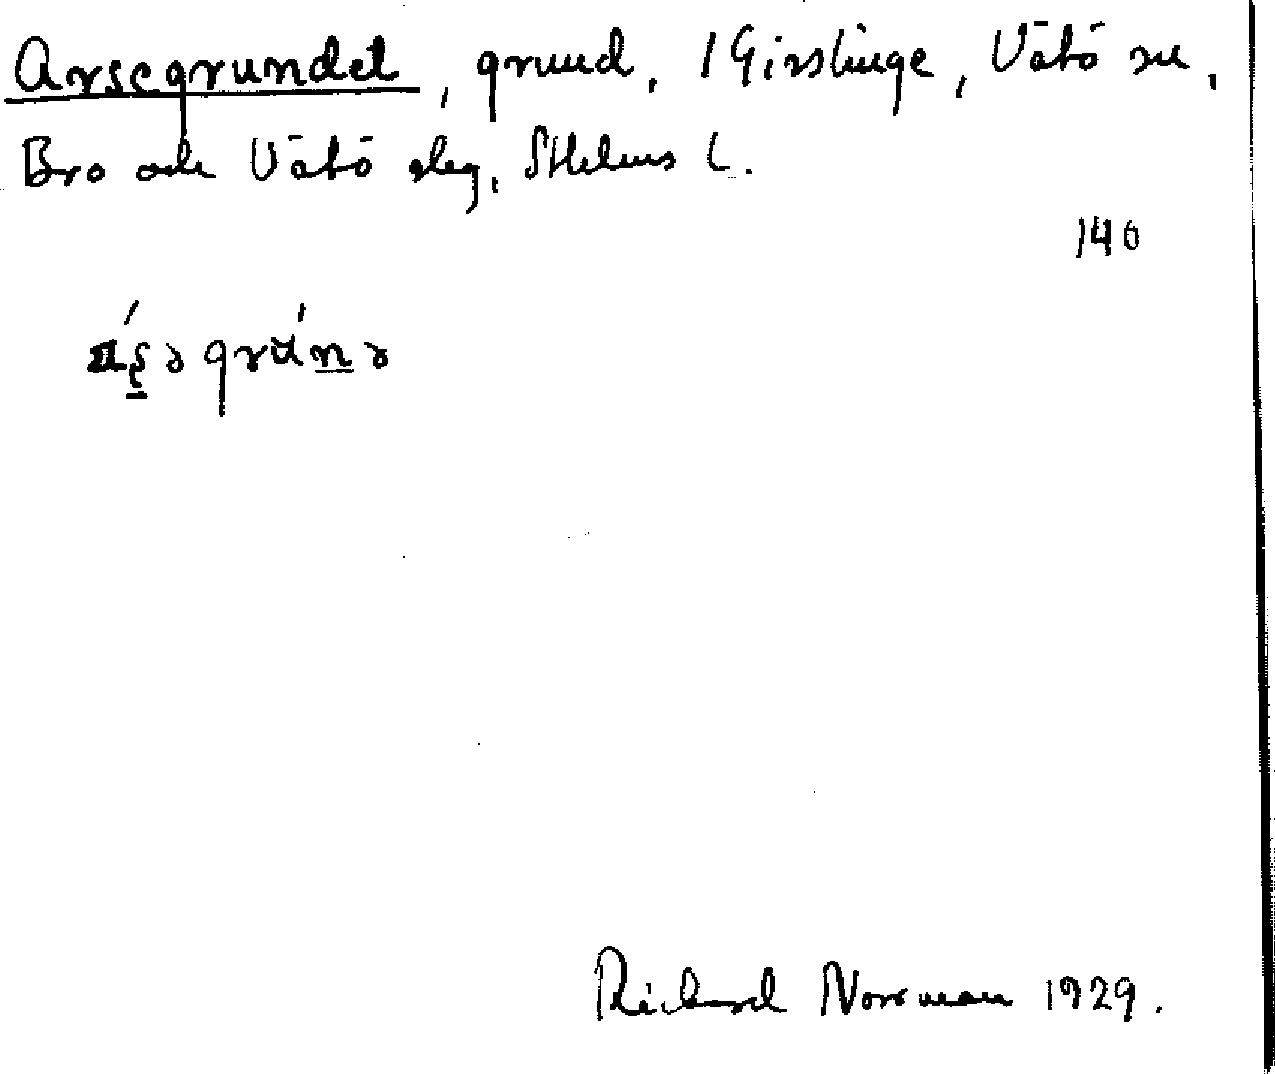 Arsegrundet, grund, i Girslinge, Vätö sn,
Bro och Vätö skg, Sthlms l.
140
Richard Norrman 1929.